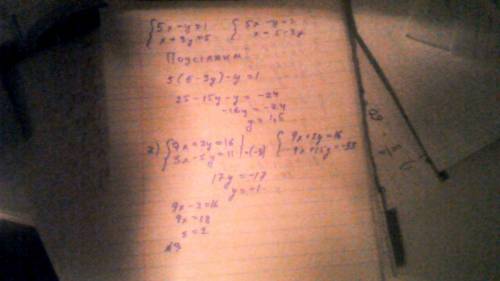 {5x-y=1 {5x-y=1
x+3y=5 x=5-3y
Подставим
5(5-3y)-y=1
25-15y-y=-24
-16y=-24
y=1,5
2) {9x+2y=16 {9x+2y=16
3x-5y=11 |·(-3) -9x+15y=-33
17y=-17
y=-1
9x-2=16
9x=18
x=2